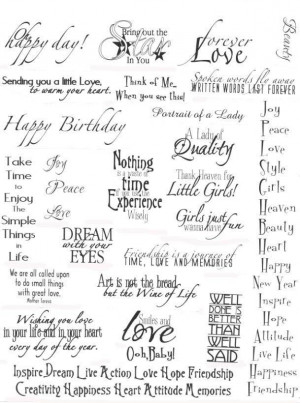 Oh happy day!
Bring out the
Star
In You
forever
Love
Beauty
Sending you a little Love,
to warm your heart.
Think of Me...
When you see this!
Spoken words fly away
WRITTEN WORDS LAST FOREVER
Happy Birthday
Portrait of a Lady
A Lady of
Quality
Joy
Peace
Love
Style
Girls
Heaven
Beauty
Heart
Happy
New Year
Inspire
Hope
Attitude
Live Life
Happiness
Friendship
Take
Time
to
Enjoy
The
Simple
Things
in
Life
Joy
Peace
Love
Nothing
is a waste of
time
if you use the
Experience
Wisely
Thank Heaven for
Little Girls!
Girls just
wanna have
fun
DREAM
with your
EYES
Friendship is a journey of
TIME, LOVE AND MEMORIES
We are all called upon
to do small things
with great love.
Mother Teresa
Art is not the bread
but the Wine of Life
Wishing you love
in your life and in your heart
every day of the year.
Smiles and
love
Ooh, Baby!
WELL
DONE IS
BETTER
THAN
WELL
SAID
Inspire Dream Live Action Love Hope Friendship
Creativity Happiness Heart Attitude Memories